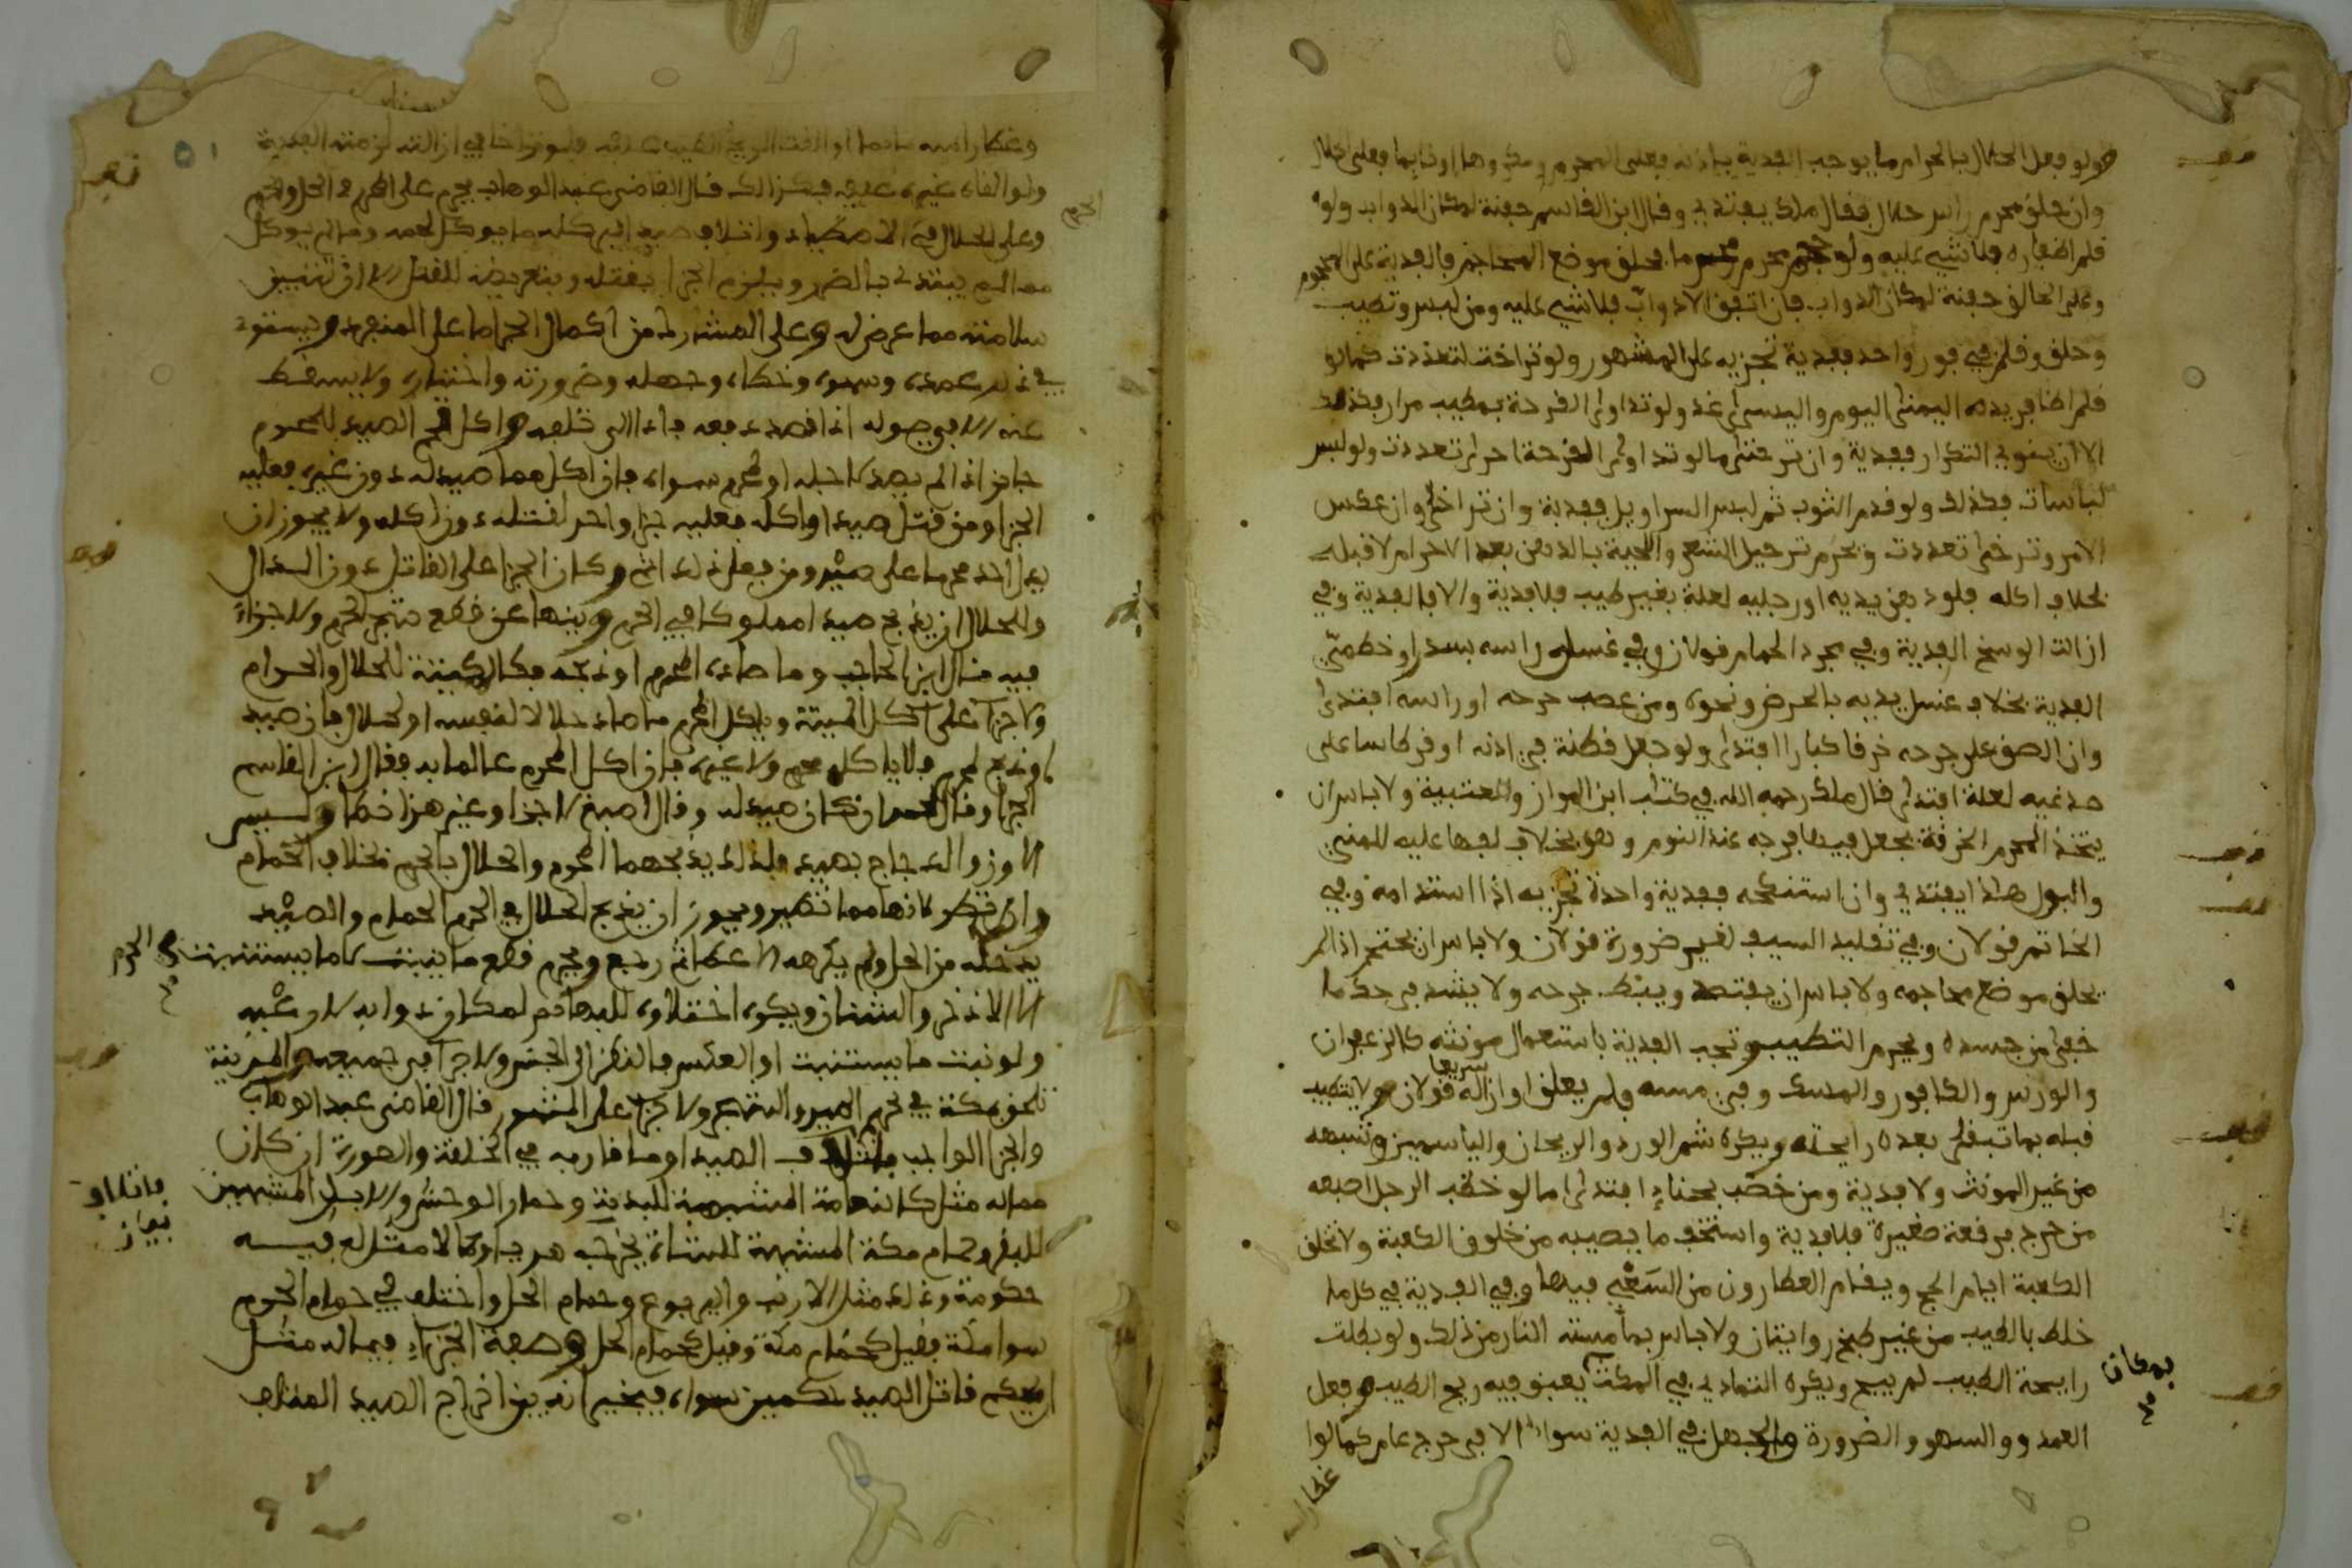 ولو فعل الحلال بالحرام ما يوجب الفدية بإذنه فعلى المحرم ومكروها اونايما فعلى الحلال
وان حلق محرم راس حلال فقال ملك يفتدي وقال ابن القاسم حفنة لمكان الدواب ولو
قلم اظفاره فلا شيء عليه ولو حجم محرم محرما فحلق موضع المحاجم فالفدية على المحجوم
وعلى الحالق حفنة لمكان الدواب فان اتفق الا دواب فلا شيء عليه ومن لبس وتطيب
وحلق وقلم في فور واحد ففدية تجزيه على المشهور ولو تراخت لتعددت كما لو
قلم اظافر يده اليمنى اليوم واليسرى غد ولو تداوى لقرحة بمطيب مرارا فكذلك
الا ان ينوي التكرار ففدية وان تراخى اما لو تداوى لقرحة اخرى تعددت ولو لبس
لباسات فكذلك ولو قدم الثوب ثم لبس السراويل ففدية وان تراخى وان عكس
الامر وتراخى تعددت ويحرم ترجيل الشعر واللحية بالدهن بعد الاحرام لا قبله
بخلاف اكله فلو دهن يديه او رجليه لعلة بغير طيب فلا فدية والا فالفدية وفي
ازالت الوسخ الفدية وفي مجرد الحمام قولان وفي غسله راسه بسدر او خطمي
الفدية بخلاف غسل يديه بالحرض ونحوه ومن عصب جرحه او راسه افتدى
وان الصق على جرحه خرقا كبارا افتدى ولو جعل قطنة في اذنه او قرطاسا على
صدغيه لعلة افتدى قال ملك رحمه الله في كتاب ابن المواز والعتبية ولا باس ان
يتخذ المحرم الخرقة يجعل فيها فرجه عند النوم وهو بخلاف لفها عليه للمني
والبول هذا يفتدي وان استنكحه ففدية واحدة تجزيه اذا استدامه وفي
الخاتم قولان وفي تقليد السيف لغير ضرورة قولان ولا باس ان يحتجم اذا لم
يحلق موضع محاجمه ولا باس ان يفتصد ويبط جرحه ولا يشد في حك ما
خفي من جسده ويحرم التطيب وتجب الفدية باستعمال مونثه كالزعفران
والورس والكافور والمسك وفي مسه ولم يعلق او ازاله سريعا قولان ولا يتطيب
قبله بما تبقى بعده رايحته ويكره شم الورد والريحان والياسمين وشبهه
من غير المونث ولا فدية ومن خضب بحناء افتدى اما لو خضب الرجل اصبعه
من جرح برقعة صغيرة فلا فدية واستخف ما يصيبه من خلوق الكعبة ولا تخلق
الكعبة ايام الحج ويقام العطارون من السعي فيها وفي الفدية في كل ما
خلط بالطيب من غير طبخ روايتان ولا باس بما مسته النار من ذلك ولو بطلت
رايحة الطيب لم يبح ويكره التمادي في المكث يعبق فيه ريح الطيب وفعل
بمكان
العمد والسهو والضرورة والجهل في الفدية سواء الا في حرج عام كما لو
غطى راسه
ولو القاه غيره عليه فكذلك قال القاضي عبد الوهاب يحرم على المحرم في الحل والحرم
وعلى الحلال في الحرم الاصطياد واتلاف صيد البر كله ما يوكل لحمه وما لم يوكل
مما لم يبتدى بالضرر ويلزم الجزاء بقتله وبتعريضه للقتل الا ان تتيقن
سلامته مما عرض له وعلى المشترك من اكمال الجزاء ما على المنفرد ويستوي
في ذلك عمده وسهوه وخطاه وجهله وضرورته واختياره ولا يسقط
عنه الا في صوله اذا قصد دفعه فادى الى تلفه واكل لحم الصيد للمحرم
جايز اذا لم يصد لاجله او لمحرم سواه فان اكل مما صيد له دون غيره فعليه
الجزا ومن قتل صيدا واكله فعليه جزا واحد لقتله دون اكله ولا يجوز ان
يدل احد محرما على صيد ومن فعل ذلك اثم وكان الجزا على القاتل دون الدال
وللحلال ان يذبح صيدا مملوكا في الحرم وينهى عن قطع شجر الحرم ولا جزاء
فيه قال ابن الحاجب وما صاده المحرم او ذبحه فكالميتة للحلال والحرام
ولا جزاء على اكل الميتة وياكل المحرم ما صاد حلالا لنفسه او لحلال فان صيد
او ذبح لمحرم فلا ياكله محرم ولا غيره فان اكل المحرم عالما به فقال ابن القاسم
الجزا وقال محمد ان كان صيد له وقال اصبغ لا جزا وغير هذا خطا وليس
الاوز والدجاج بصيد فلذلك يذبحهما المحرم والحلال بالحرم بخلاف الحمام
وان لم يطر لانها مما تطير ويجوز ان يذبح الحلال في الحرم الحمام والصيد
يدخله من الحل ولم يكرهه الا عطا ثم رجع ويحرم قطع ما ينبت لا ما يستنبت في الحرم
الا الاذخر والسنا ويكره اختلاؤه للبهايم لمكان دوابه لا رعيه
ولو نبت ما يستنبت او العكس فالنظر الى الجنس ولا جزا في جميعه والمدينة
تلحق بمكة في تحريم الصيد والشجر ولا جزا على المشهور قال القاضي عبد الوهاب
والجزا الواجب باتلاف الصيد او ما قاربه في الخلقة والصورة ان كان
مماله مثل كالنعامة المشبهة للبدنة وحمار الوحش والايل المشبهين
للبقر وحمام مكة المشبهة للشاة يخرجه هديا وما لا مثل له فيه
حكومة وذلك مثل الارنب واليربوع وحمام الحل واختلف في حمام الحرم
سوا مكة فقيل كحمام مكة وقيل كحمام الحل وصفة الجزاء فيما له مثل
ان يحكم قاتل الصيد حكمين سواه فيخيرانه بين اخراج الصيد المتلف